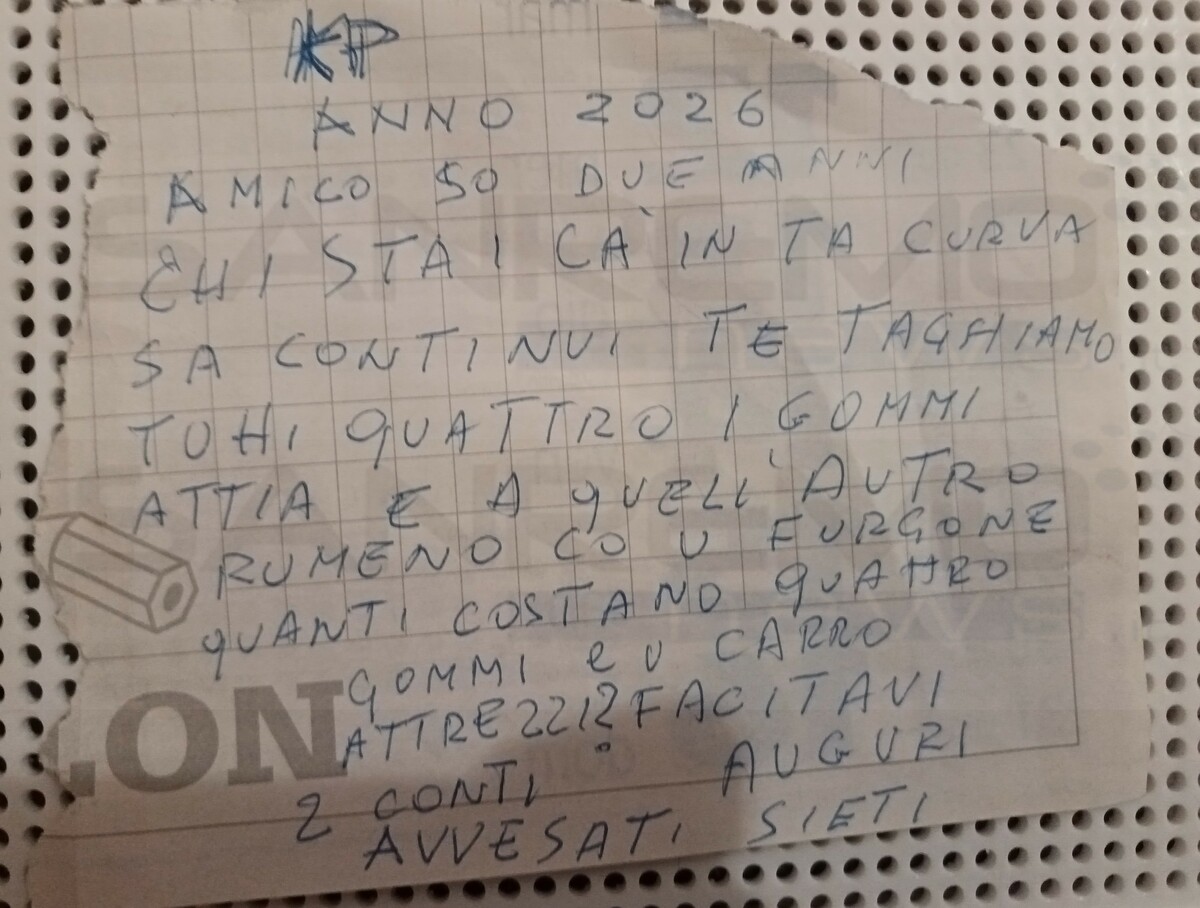 KP
ANNO 2026
AMICO SO DUE ANNI
CHI STAI CÀ IN TA CURVA
SA CONTINUI TE TAGHIAMO
TUHI QUATTRO I GOMMI
ATTIA E A QUELL'AUTRO
RUMENO CO U FURGONE
QUANTI COSTANO QUATTRO
GOMMI E U CARRO
ATTREZZI? FACITAVI
2 CONTI AUGURI
AVVESATI SIETI
LON